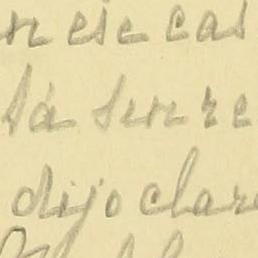 n ese cas
tá sin re
dijo clar